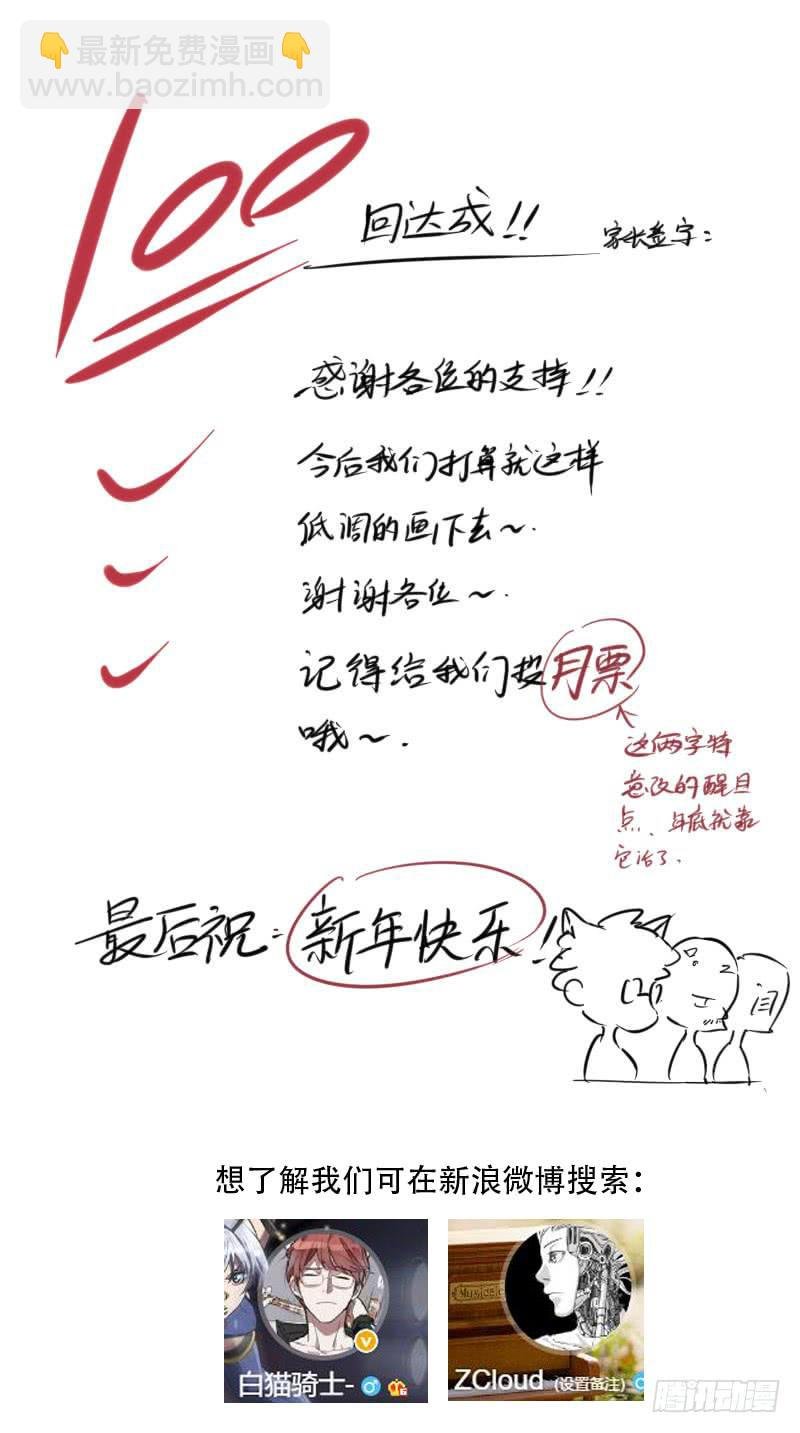 👇最新免费漫画👇
www.baozimh.com
100
回达成!!
家长签字：
感谢各位的支持!!
今后我们打算就这样
低调的画下去~.
谢谢各位~.
记得给我们投月票
哦~.
这俩字特
意改的醒目
点、年底就靠
它活了.
最后祝：新年快乐!
想了解我们可在新浪微博搜索：
Musical
白猫骑士-
ZCloud (设置备注)
腾讯动漫